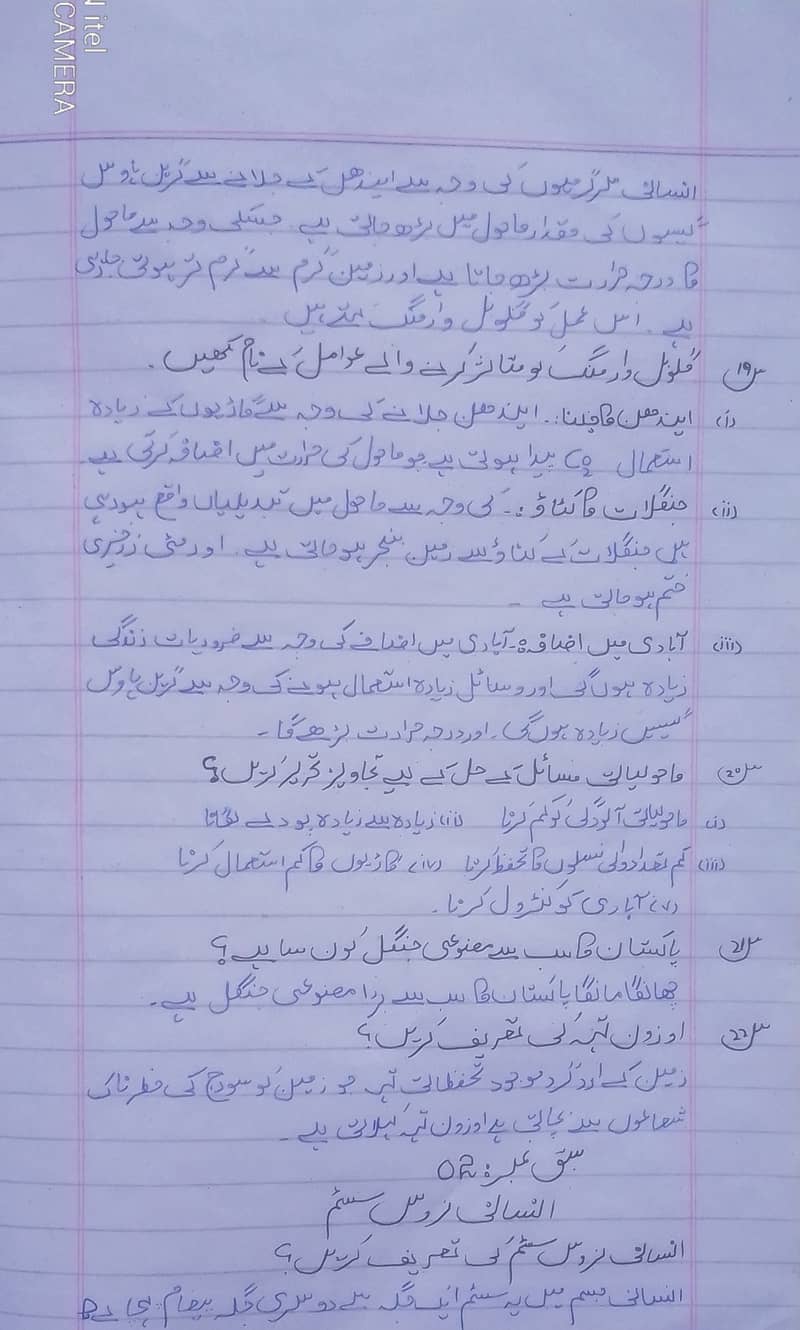 N itel
CAMERA
انسانی سرگرمیوں کی وجہ سے ایندھن کے جلانے سے گرین ہاوس
گیسوں کی مقدار ماحول میں بڑھ جاتی ہے۔ جسکی وجہ سے ماحول
کا درجہ حرارت بڑھ جاتا ہے اور زمین گرم سے گرم تر ہوتی جارہی
ہے۔ اس عمل کو گلوبل وارمنگ کہتے ہیں۔
س19 گلوبل وارمنگ کو متاثر کرنے والے عوامل کے نام لکھیں۔
(i) ایندھن کا جلنا:۔ ایندھن جلانے کی وجہ سے گاڑیوں کے زیادہ
استعمال CO2 پیدا ہوتی ہے جو ماحول کی حرارت میں اضافہ کرتی ہے
(ii) جنگلات کا کٹاؤ:۔ کی وجہ سے ماحول میں تبدیلیاں واقع ہورہی
ہیں جنگلات کے کٹاؤ سے زمین بنجر ہو جاتی ہے۔ اور مٹی زرخیزی
ختم ہو جاتی ہے ۔
(iii) آبادی میں اضافہ:۔ آبادی میں اضافے کی وجہ سے ضروریات زندگی
زیادہ ہوں گی اور وسائل زیادہ استعمال ہونے کی وجہ سے گرین ہاوس
گیسیں زیادہ ہوں گی۔ اور درجہ حرارت بڑھے گا۔
س20 ماحولیاتی مسائل کے حل کے لیے تجاویز تحریر کریں؟
(i) ماحولیاتی آلودگی کو کم کرنا (ii) زیادہ سے زیادہ پودے لگانا
(iii) کم تعداد والی نسلوں کا تحفظ کرنا (iv) گاڑیوں کا کم استعمال کرنا
(v) آبادی کو کنٹرول کرنا۔
س21 پاکستان کا سب سے مصنوعی جنگل کون سا ہے؟
چھانگا مانگا پاکستان کا سب سے بڑا مصنوعی جنگل ہے۔
س22 اوزون تہہ کی تعریف کریں؟
زمین کے اردگرد موجود تحفظاتی تہہ جو زمین کو سورج کی خطرناک
شعاعوں سے بچاتی ہے اوزون تہہ کہلاتی ہے۔
سبق نمبر: 02
انسانی نروس سسٹم
انسانی نروس سسٹم کی تعریف کریں؟
انسانی جسم میں یہ سسٹم ایک جگہ سے دوسری جگہ پیغام